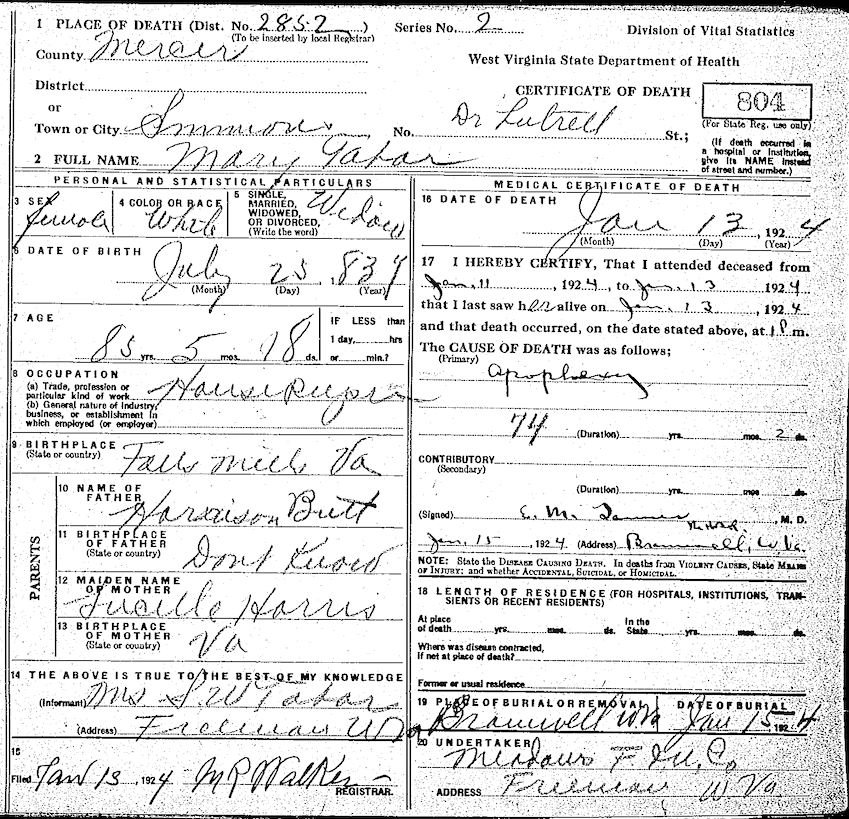 1 PLACE OF DEATH (Dist. No. 2852)
(To be inserted by local Registrar)
Series No. 2
Division of Vital Statistics
County Mercer
West Virginia State Department of Health
District
CERTIFICATE OF DEATH
804
(For State Reg. use only)
or
Town or City Simmons No. Dr Lutrell St.;
(If death occurred in a hospital or institution, give its NAME instead of street and number.)
2 FULL NAME Mary Tabor
PERSONAL AND STATISTICAL PARTICULARS
3 SEX Female
4 COLOR OR RACE White
5 SINGLE, MARRIED, WIDOWED, OR DIVORCED, (Write the word) Widow
6 DATE OF BIRTH
July 25, 1837
(Month) (Day) (Year)
7 AGE
85 yrs. 5 mos. 18 ds.
IF LESS than
1 day, hrs
or min.?
8 OCCUPATION
(a) Trade, profession or
particular kind of work
(b) General nature of industry,
business, or establishment in
which employed (or employer)
9 BIRTHPLACE
(State or country) Falls Mills Va
PARENTS
10 NAME OF
FATHER Harrison Britt
11 BIRTHPLACE
OF FATHER
(State or country) Dont Know
12 MAIDEN NAME
OF MOTHER Lucille Harris
13 BIRTHPLACE
OF MOTHER
(State or country) Va
14 THE ABOVE IS TRUE TO THE BEST OF MY KNOWLEDGE
(Informant) Mrs S W Tabor
(Address) Freeman W Va
15
Filed Jan 13, 1924 M R Walker
REGISTRAR.
MEDICAL CERTIFICATE OF DEATH
16 DATE OF DEATH
Jan 13, 1924
(Month) (Day) (Year)
17 I HEREBY CERTIFY, That I attended deceased from
Jan. 11 1924, to Jan. 13 1924
that I last saw her alive on Jan. 13 1924
and that death occurred, on the date stated above, at 1 P. m.
The CAUSE OF DEATH was as follows;
(Primary)
Apoplexy
74 (Duration) yrs. mos. 2 ds.
CONTRIBUTORY
(Secondary)
(Duration) yrs. mos. ds.
(Signed) E. M. Tanner, M. D.
Jan, 15, 1924 (Address) Bramwell, W. Va.
NOTE: State the DISEASE CAUSING DEATH. In deaths from VIOLENT CAUSES, State MEANS
OF INJURY: and whether ACCIDENTAL, SUICIDAL, OR HOMICIDAL.
18 LENGTH OF RESIDENCE (FOR HOSPITALS, INSTITUTIONS, TRAN-
SIENTS OR RECENT RESIDENTS)
At place
of death yrs. mos. ds.
In the
State yrs. mos. ds.
Where was disease contracted,
if not at place of death?
Former or usual residence
19 PLACE OF BURIAL OR REMOVAL
Bramwell W Va
DATE OF BURIAL
Jan 15 1924
20 UNDERTAKER
Meadows F Co
ADDRESS Freeman W Va